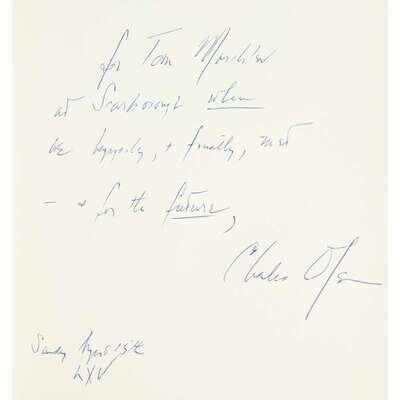 for Tom Maschler
at Scarborough when
we happily, + finally, met
— & for the future,
Charles Olson
Sunday August 15th
LXV